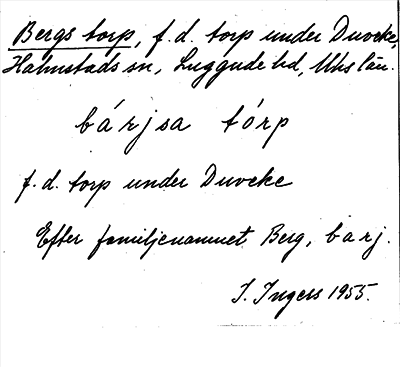 Bergs torp, f.d. torp under Duveke,
Halmstads sn, Luggude hd, Mhs län.
bárjsa tórp
f.d. torp under Duveke
Efter familjenamnet Berg, barj.
I. Ingers 1955.